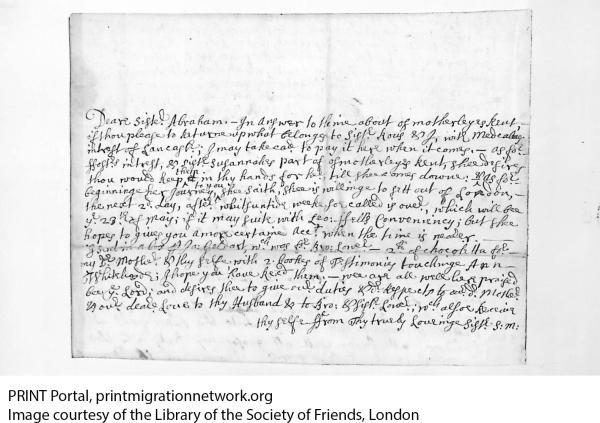 Deare Sister Abraham – In Answer to thine about of motherleyes Rent,
if thou please to Returne up what belongs to Sistr: Rous & I, with
intrest of Lancastr: I may take care to pay it here when it comes – as for
intrest, & sistr Susannahs part of motlarleyes Rent, shee desires
thou would keep in thy hands for her; till shee comes downe; & as for
beginninge her Journey to you shee saith, shee is willinge to sett out of London,
the next 2d: day, after whitsuntide weeke soe called is over, which will bee
ye 29th of may; if it may suite with Leo: ffells Conveniency; but shee
hopes to give you a more certaine Acct: when the time is neader –
I sent in a box Bro: Lower – 2li of chocoletta for
my Dr Mother & thy selfe with 2: bookes of Testimonies touchinge Ann
Whiteheade; I hope you have Recd them: – wee are all well here praised
bee ye Lord; and desires thee to give our duties & Respects to our dr: Mother
& our deare Love to thy Husband & to Bro: & Sistr Lower; wch alsoe Receive
thy selfe ffrom Thy truely Loveinge Sistr: S: M:
PRINT Portal, printmigrationnetwork.org
Image courtesy of the Library of the Society of Friends, London